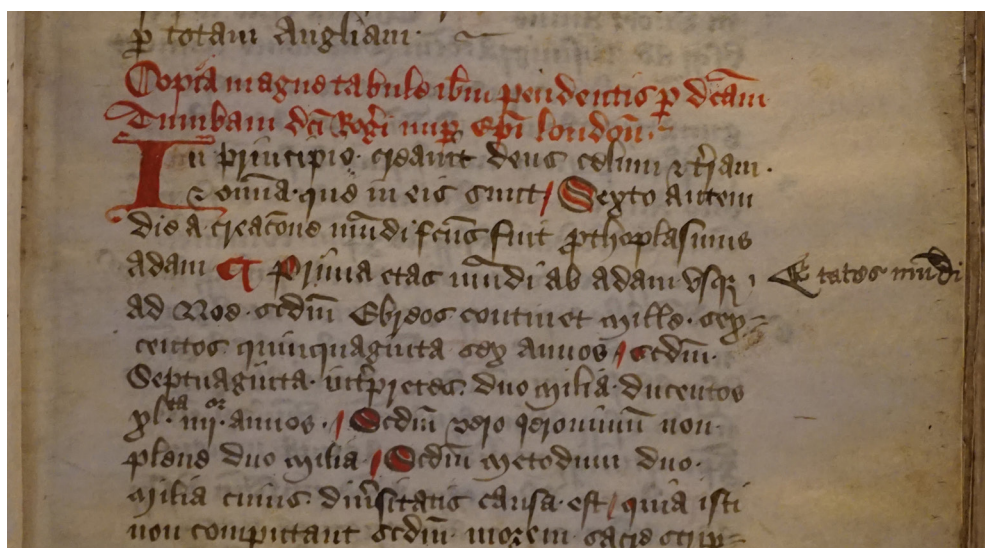 ꝑ totam Angliam·
Copia magne tabule ib̄m pendentis ꝑ dc̄am
Tumbam dc̄i Rog̃i nuꝑ ep̄i london̄·
In principio· creauit deus celum ⁊ t̃ram·
⁊ om̄ia· que in eis sunt / Sexto autem
die a creac̄one mūdi fc̄us fuit ꝓthoplasmus
adam ¶ Prima etas mūdi ab adam vsqꝫ
Etates mūdi
ad Noe· scdm̄ Ebreos continet mille· sex=
centos quinquaginta sex annos / scdm̄·
Septuagīta· int̃pretes· duo milia· ducentos
xl·ta iiij·or annos· / Scdm̄ vero Jeronimū non·
plene duo milia / Scdm̄ metodium duo·
milia cuius diu̾sitatis causa· est / quia isti
non computant scdm̄· morem sac̾e scrip=